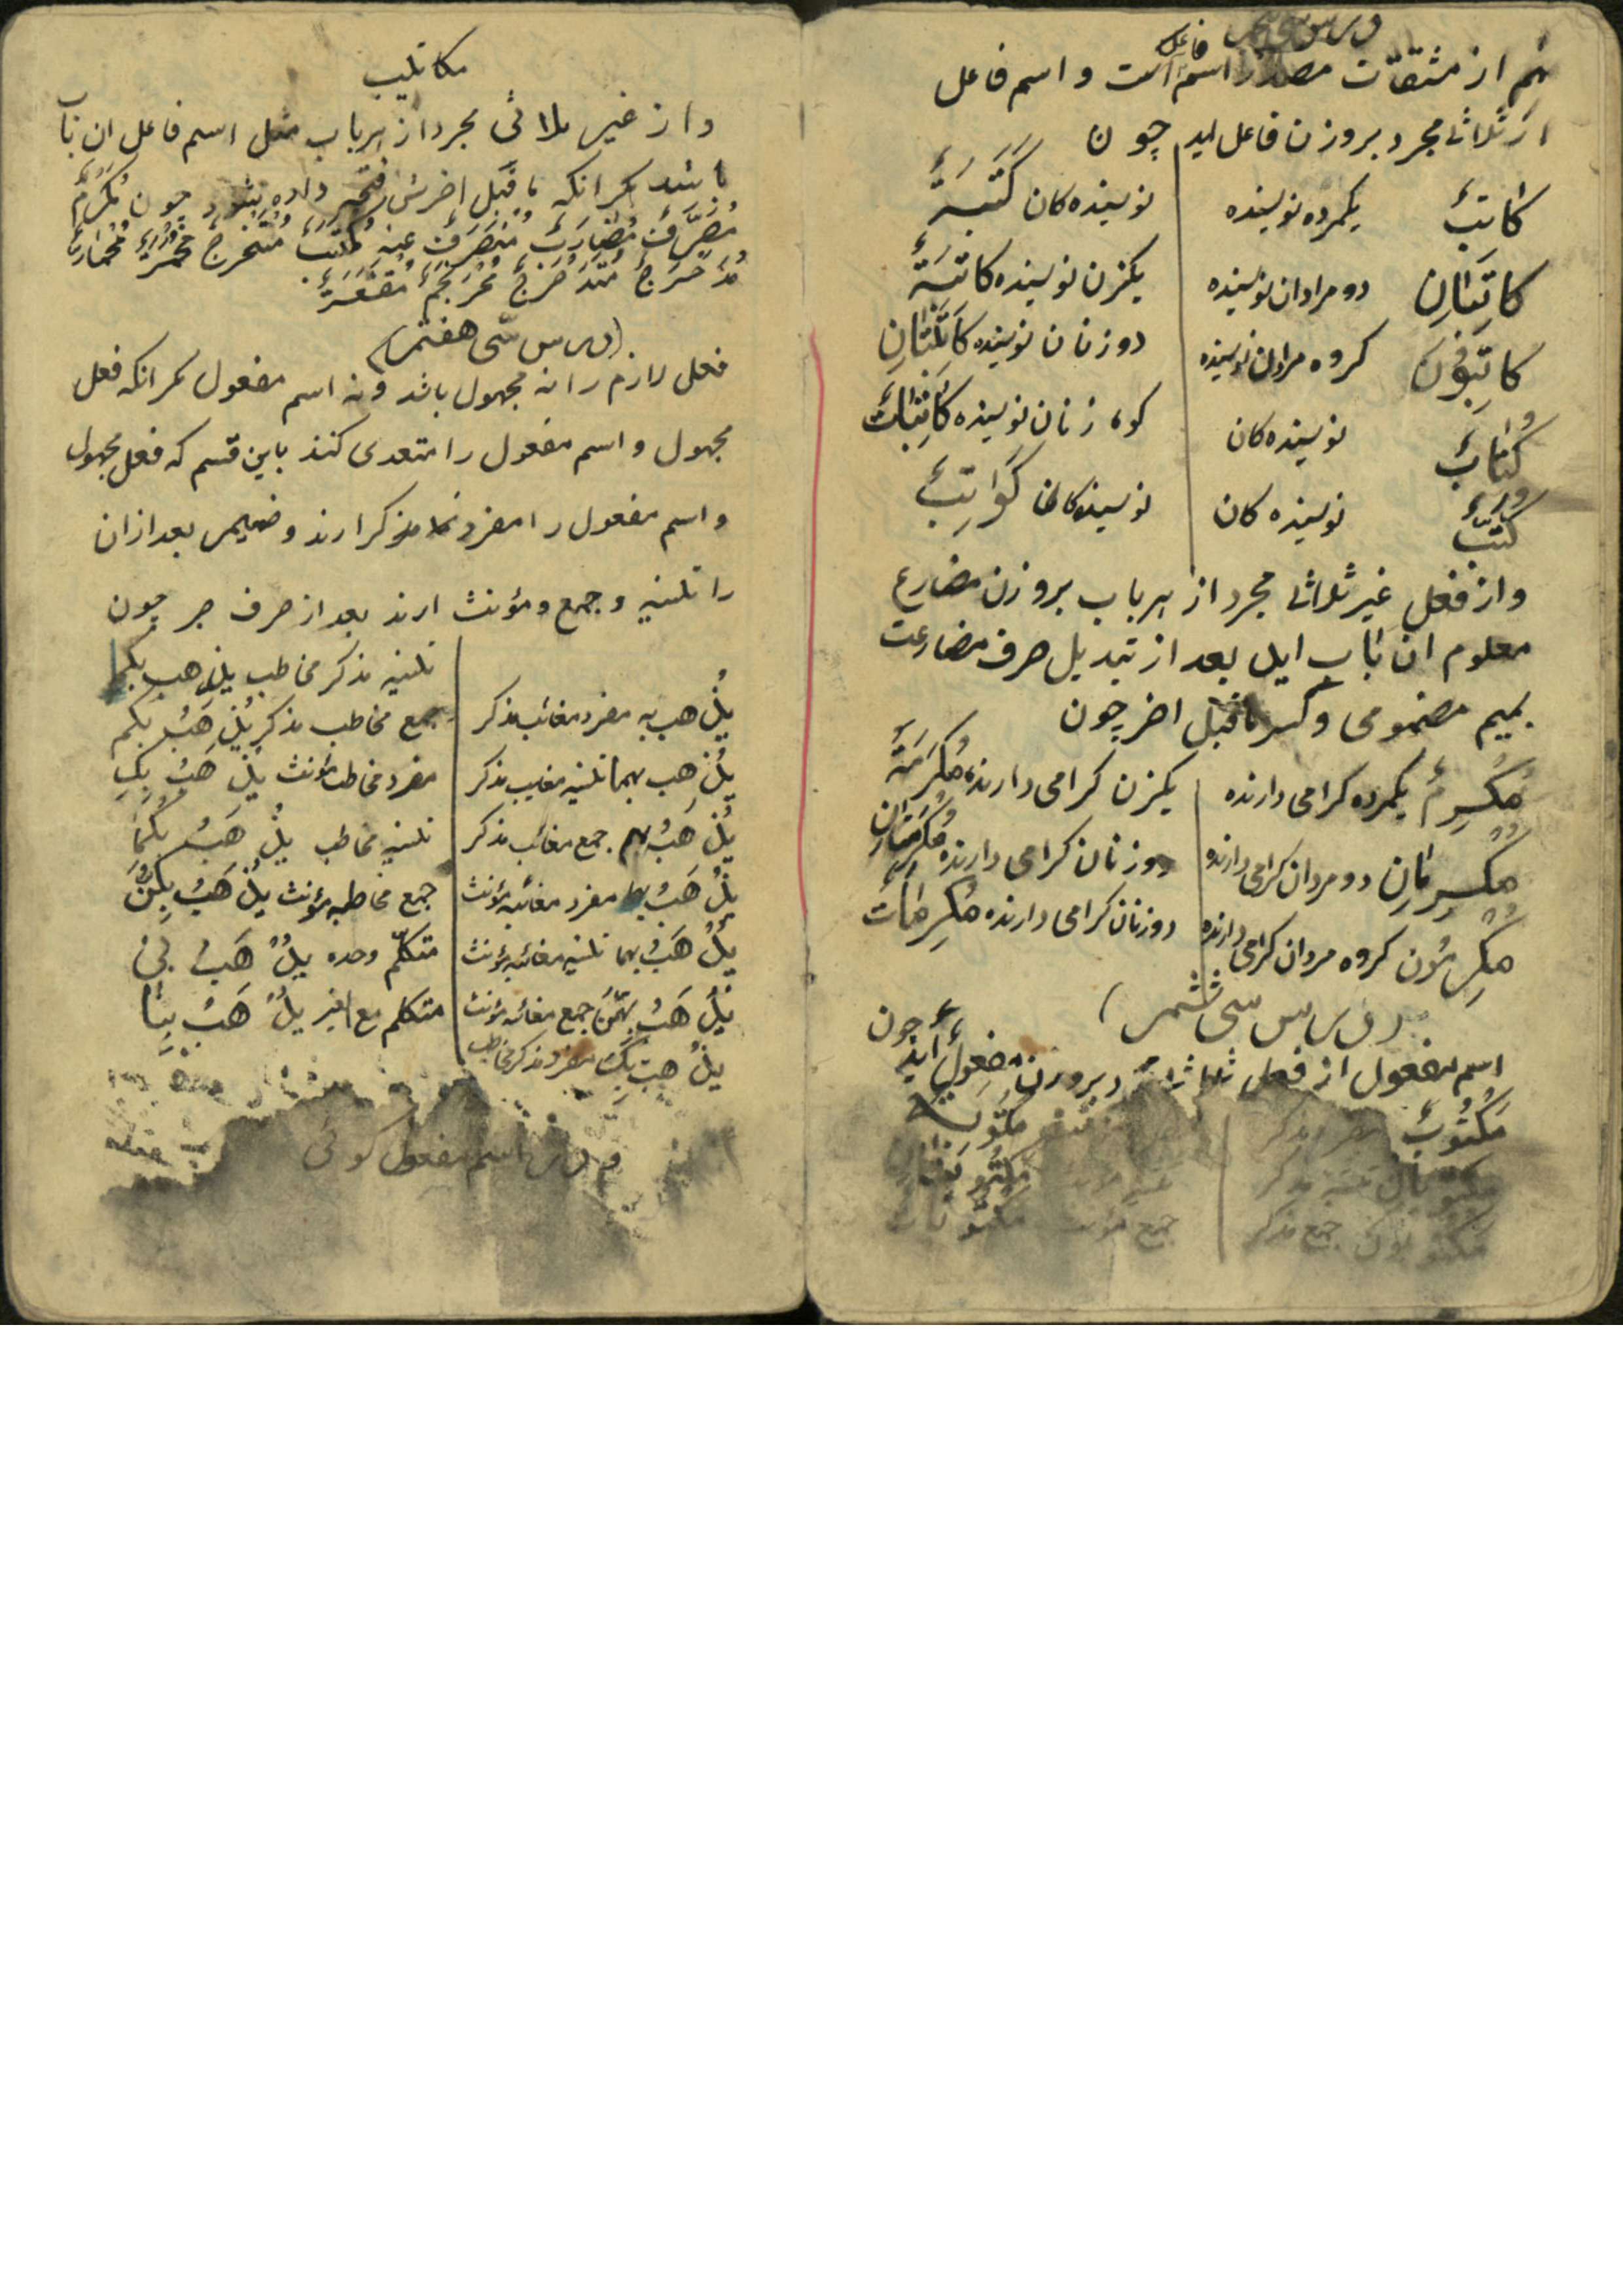 هم از مشتقات مصدر اسم فاعل است و اسم فاعل
از ثلاثی مجرد بر وزن فاعل اید چون
کاتبٌ یکمرده نویسنده نویسنده کان کَتَبَةٌ
کاتِبَانِ دو مرادان نویسنده یکزن نویسنده کاتبَةٌ
کاتِبُونَ کروه مردان نویسنده دو زنان نویسنده کاتِبَتَانِ
کُتّابٌ نویسنده کان کروه زنان نویسنده کاتِبَاتٌ
کُتَّبٌ نویسنده کان نویسنده کان کَوَاتِبُ
و از فعل غیر ثلاثی مجرد از هر باب بر وزن مضارع
معلوم ان باب اید بعد از تبدیل حرف مضارعت
بمیم مضمومی و کسر ماقبل اخر چون
مُکرِمٌ یکمرده کرامی دارنده یکزن کرامی دارنده مُکرِمَةٌ
مُکرِمَانِ دو مردان کرامی دارنده دو زنان کرامی دارنده مُکرِمَتَانِ
مُکرِمُون کروه مردان کرامی دارنده دو زنان کرامی دارنده مُکرِمَاتٌ
(درس سی ششم)
اسم مفعول از فعل ثلاثی بر وزن مفعولٌ اید چون
مَکتُوبٌ مفرد مذکر مکتوبة
مکتوبان تثنیه مذکر مکتوبتان
مکتوبون جمع مذکر جمع مؤنث مکتوبات
مکاتیب
و از غیر ثلاثی مجرد از هر باب مثل اسم فاعل ان باب
باشد مکر انکه ماقبل اخرش فتحه داده بشود چون مُکرَمٌ
مُصَرَّفٌ مُضَارَبٌ مُنصَرَفٌ عنه مُکتَسَبٌ مُستَخرَجٌ
مُدَحرَجٌ مُتَدَحرَجٌ مُحرَنجَمٌ مُقشَعَرٌّ
(درس سی هفتم)
فعل لازم را نه مجهول باشد و نه اسم مفعول مکر انکه فعل
مجهول و اسم مفعول را متعدی کنند باین قسم که فعل مجهول
و اسم مفعول را مفرد مذکر ارند و ضمیر بعد ازان
را تثنیه و جمع و مؤنث ارند بعد از حرف جر چون
تثنیه مذکر مخاطب یذهب بکما
یُذهب به مفرد مغائب مذکر جمع مخاطب مذکر یُذهَبُ بکم
یُذهب بهما تثنیه مغایب مذکر مفرد مخاطب مؤنث یذهَبُ بِکِ
یُذهَبُ بهم جمع مغائب مذکر تثنیه مخاطب یذهَبُ بکُمَا
یُذهَبُ بها مفرد مغائبه مؤنث جمع مخاطبه مؤنث یُذهَبُ بِکُنَّ
یُذهَبُ بهما تثنیه مغائبه مؤنث متکلّم وحده یُذهَبُ بی
یُذهَبُ بهنَّ جمع مغائبه مؤنث متکلم مع الغیر یُذهَبُ بِنَا
یذهب بِکَ مفرد مذکر مخاطب
و در اسم مفعول کوئی